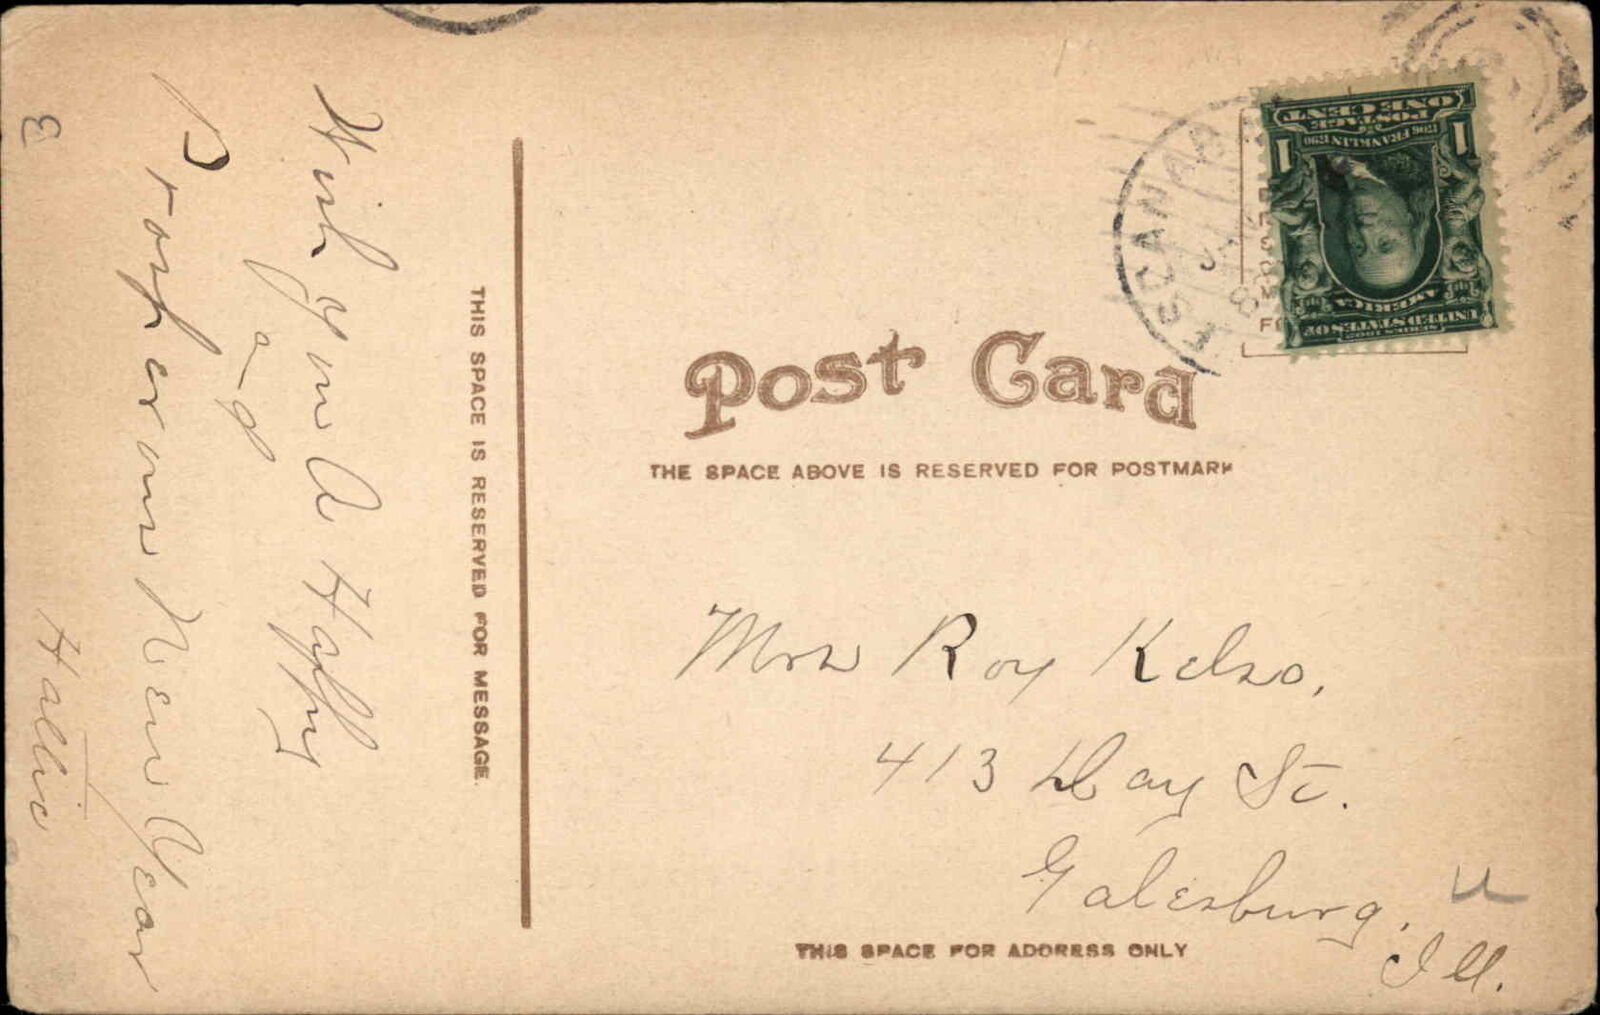 Wish you A Happy
a-d
Prosperous New Year
Hattie
THIS SPACE IS RESERVED FOR MESSAGE.
Post Card
THE SPACE ABOVE IS RESERVED FOR POSTMARK
ESCANABA
JAN
ONE CENT
POSTAGE
1706 FRANKLIN 1790
1 1
AMERICA
UNITED STATES OF
SERIES 1902
Mrs Roy Kelso,
413 Day St.
Galesburg,
Ill.
THIS SPACE FOR ADDRESS ONLY